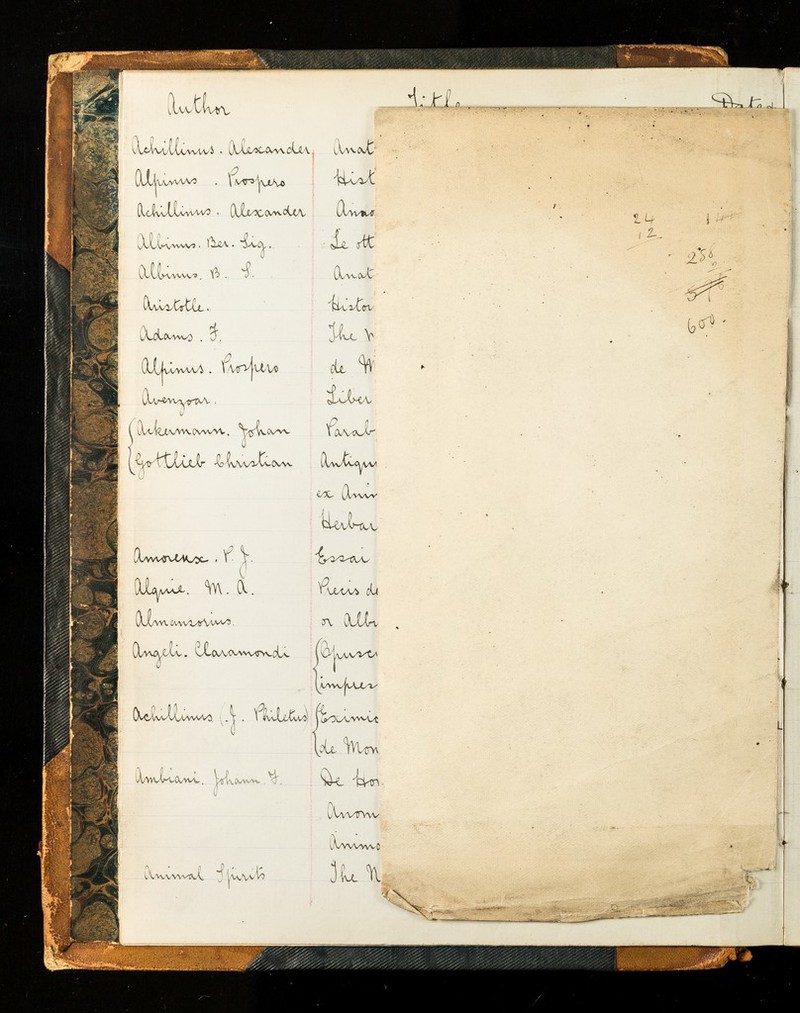 Author Title Dated
Achillinus. Alexander Anat
Alpinus. Prospero Hist
Achillinus. Alexander Anno
Albinus. Ber. Sig. Le ott
Albinus. B. S. Anat
Aristotle. Histor
Adams. F. The
Alpinus. Prospero de M
Avenzoar. Liber
Ackermann. Johan Parab
Gottlieb Christian Antiqu
ex Anim
Herbar
Amoreux. P. J. Essai
Alquie. M. A. Precis de
Almansorius. or Albu
Angeli. Claramondi Opusc
impres
Achillinus (J. Philetus) Eximie
de Mon
Ambiani. Johann. F. De Hor
Anom
Animo
Animal Spirits The N
24
12
288
2
600.